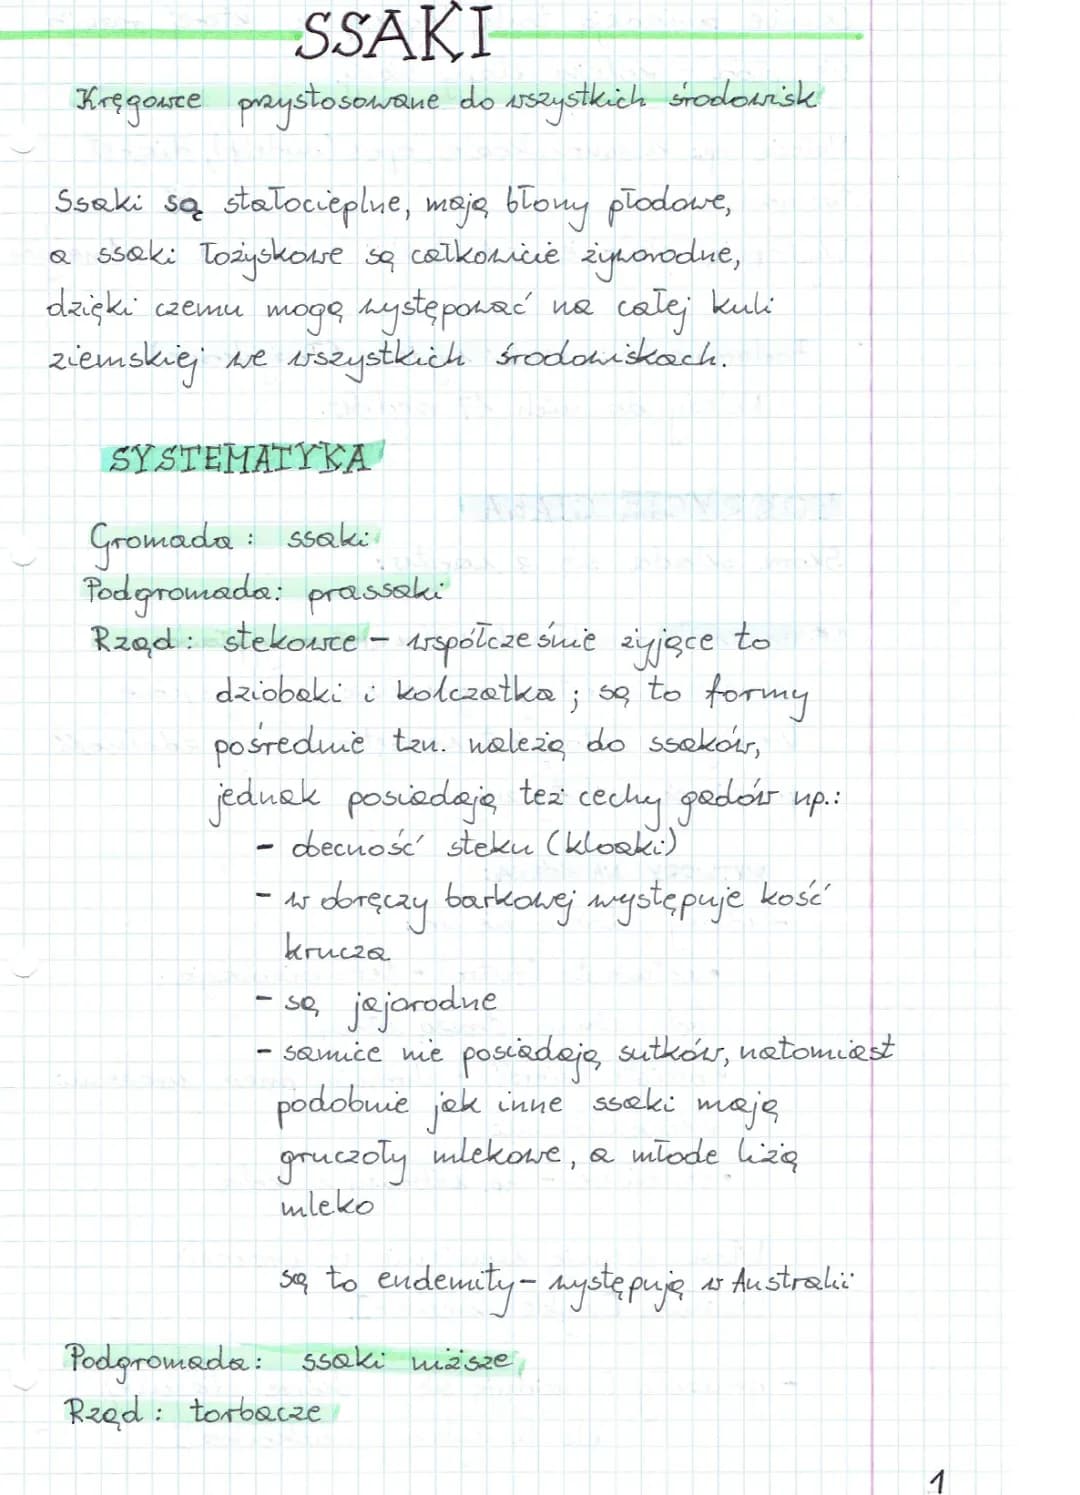 SSAKI
Kręgowce przystosowane do wszystkich środowisk
Ssaki są stałocieplne, mają błony płodowe,
a ssaki łożyskowe są całkowicie żyworodne,
dzięki czemu mogą występować na całej kuli
ziemskiej we wszystkich środowiskach.
SYSTEMATYKA
Gromada: ssaki
Podgromada: prassaki
Rząd: stekowce - współcześnie żyjące to
dziobaki i kolczatka; są to formy
pośrednie tzn. należą do ssaków,
jednak posiadają też cechy gadów np.:
- obecność steku (kloaki)
- w obręczy barkowej występuje kość
krucza
- są jajorodne
- samice nie posiadają sutków, natomiast
podobnie jak inne ssaki mają
gruczoły mlekowe, a młode liżą
mleko
są to endemity - występują w Australii
Podgromada: ssaki niższe
Rząd: torbacze
1